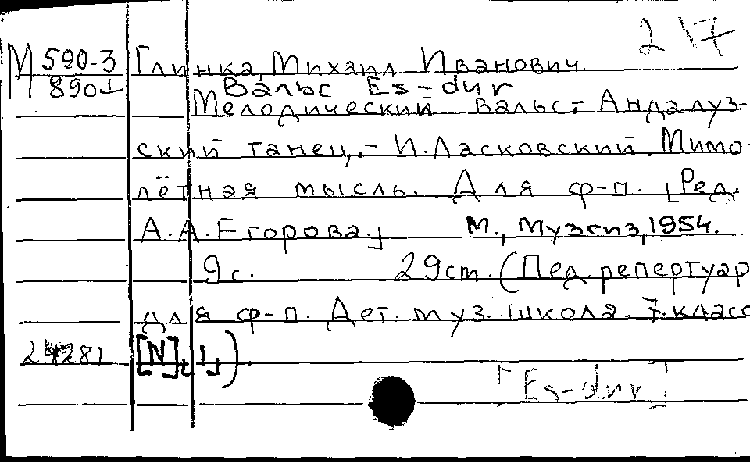 2 17
М 590-3 Глинка, Михаил Иванович
890 Вальс Es-dur
Мелодический вальс.- Андалуз-
ский танец.- И.Ласковский. Мимо-
лётная мысль. Для ф-п. [Ред.
А.А.Егорова] М., Музгиз, 1954.
9с. 29cm. (Пед. репертуар
для ф-п. Дет. муз. школа. 7. класс
[N], 1,).
[Es-dur]